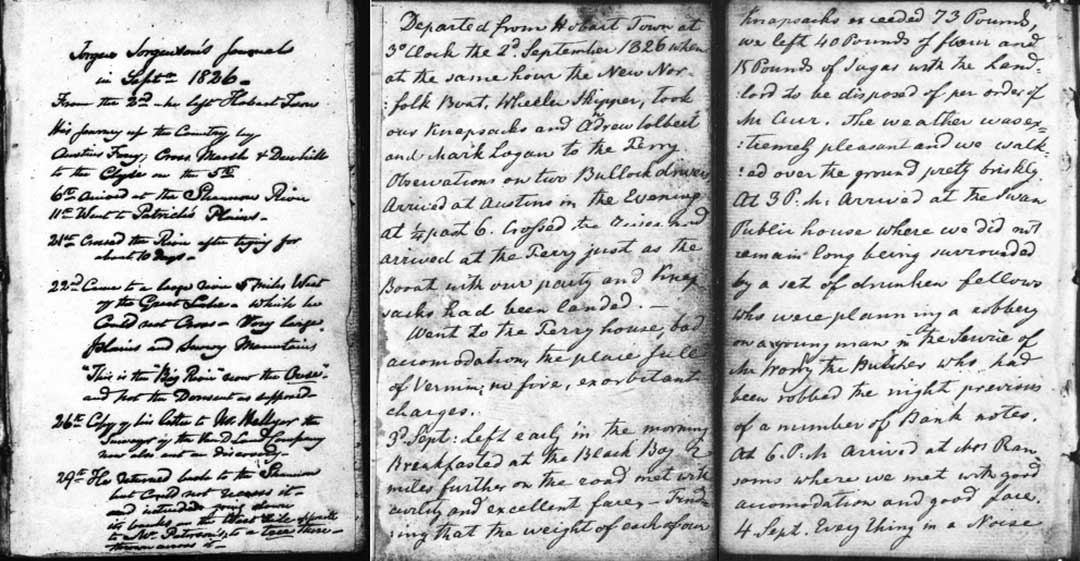 Jorgen Jorgenson's Journals
in Sept.. 1826 -
From the 2nd - he left Hobart Town
His Journey up the Country by
Austins Ferry, Cross Marsh & Denhill
to the Clyde on the 5th
6th Arrived at the Shannon River
11th Went to Patrick's Plains -
21st Crossed the River after trying for
about 10 days -
22nd Came to a large river 5 Miles West
of the Great Lake - which he
Could not Cross - Very large
Plains and Snowy Mountains
"This is the "Big River" now the Ouse" -
and not the Derwent as supposed
26th Copy of his letter to Mr. Hellyer the
Surveyor of the Van D Land Company
now also out on discovery -
29th He returned back to the Shannon
but Could not recross it -
and intended going down
its banks on the West Side opposite
to Mr. Paterson's, to a tree there -
thrown across it -
Departed from Hobart Town at
3 o'Clock the 2d September 1826 when
at the same hour the New Nor-
:folk Boat, Wheeler Skipper, took
our Knapsacks and Adrew Colbert
and Mark Logan to the Ferry
Obsevations on two Bullock drivers
Arrived at Austins in the Evening
at ¼ past 6. Crossed the River and
arrived at the Ferry just as the
Boat with our party and Knap
sacks had been landed. -
Went to the Ferry house, bad
accomodation, the place full
of Vermin; no fire, exorbitant
charges.
3d Sept: Left early in the morning
Breakfasted at the Black Boy 2
miles further on the road met with
civility and excellent fare, - Find-
:ing that the weight of each of our
Knapsacks exceeded 73 Pounds,
we left 40 Pounds of flour and
15 Pounds of Sugar with the Land-
:lord to be disposed of per order of
Mr Curr. The weather was ex=
:tremely pleasant and we walk-
:ed over the ground prety briskly.
At 3 P.M. Arrived at the Swan
Public house where we did not
remain long being surrounded
by a set of drunken fellows
who were planning a robbery
on a young man in the Service of
Mr the Butcher who had
been robbed the night previous
of a number of Bank notes.
At 6. P.M Arrived at Mrs Ran-
soms where we met with good
accomodation and good fare.
4 Sept. Every thing in a Noise